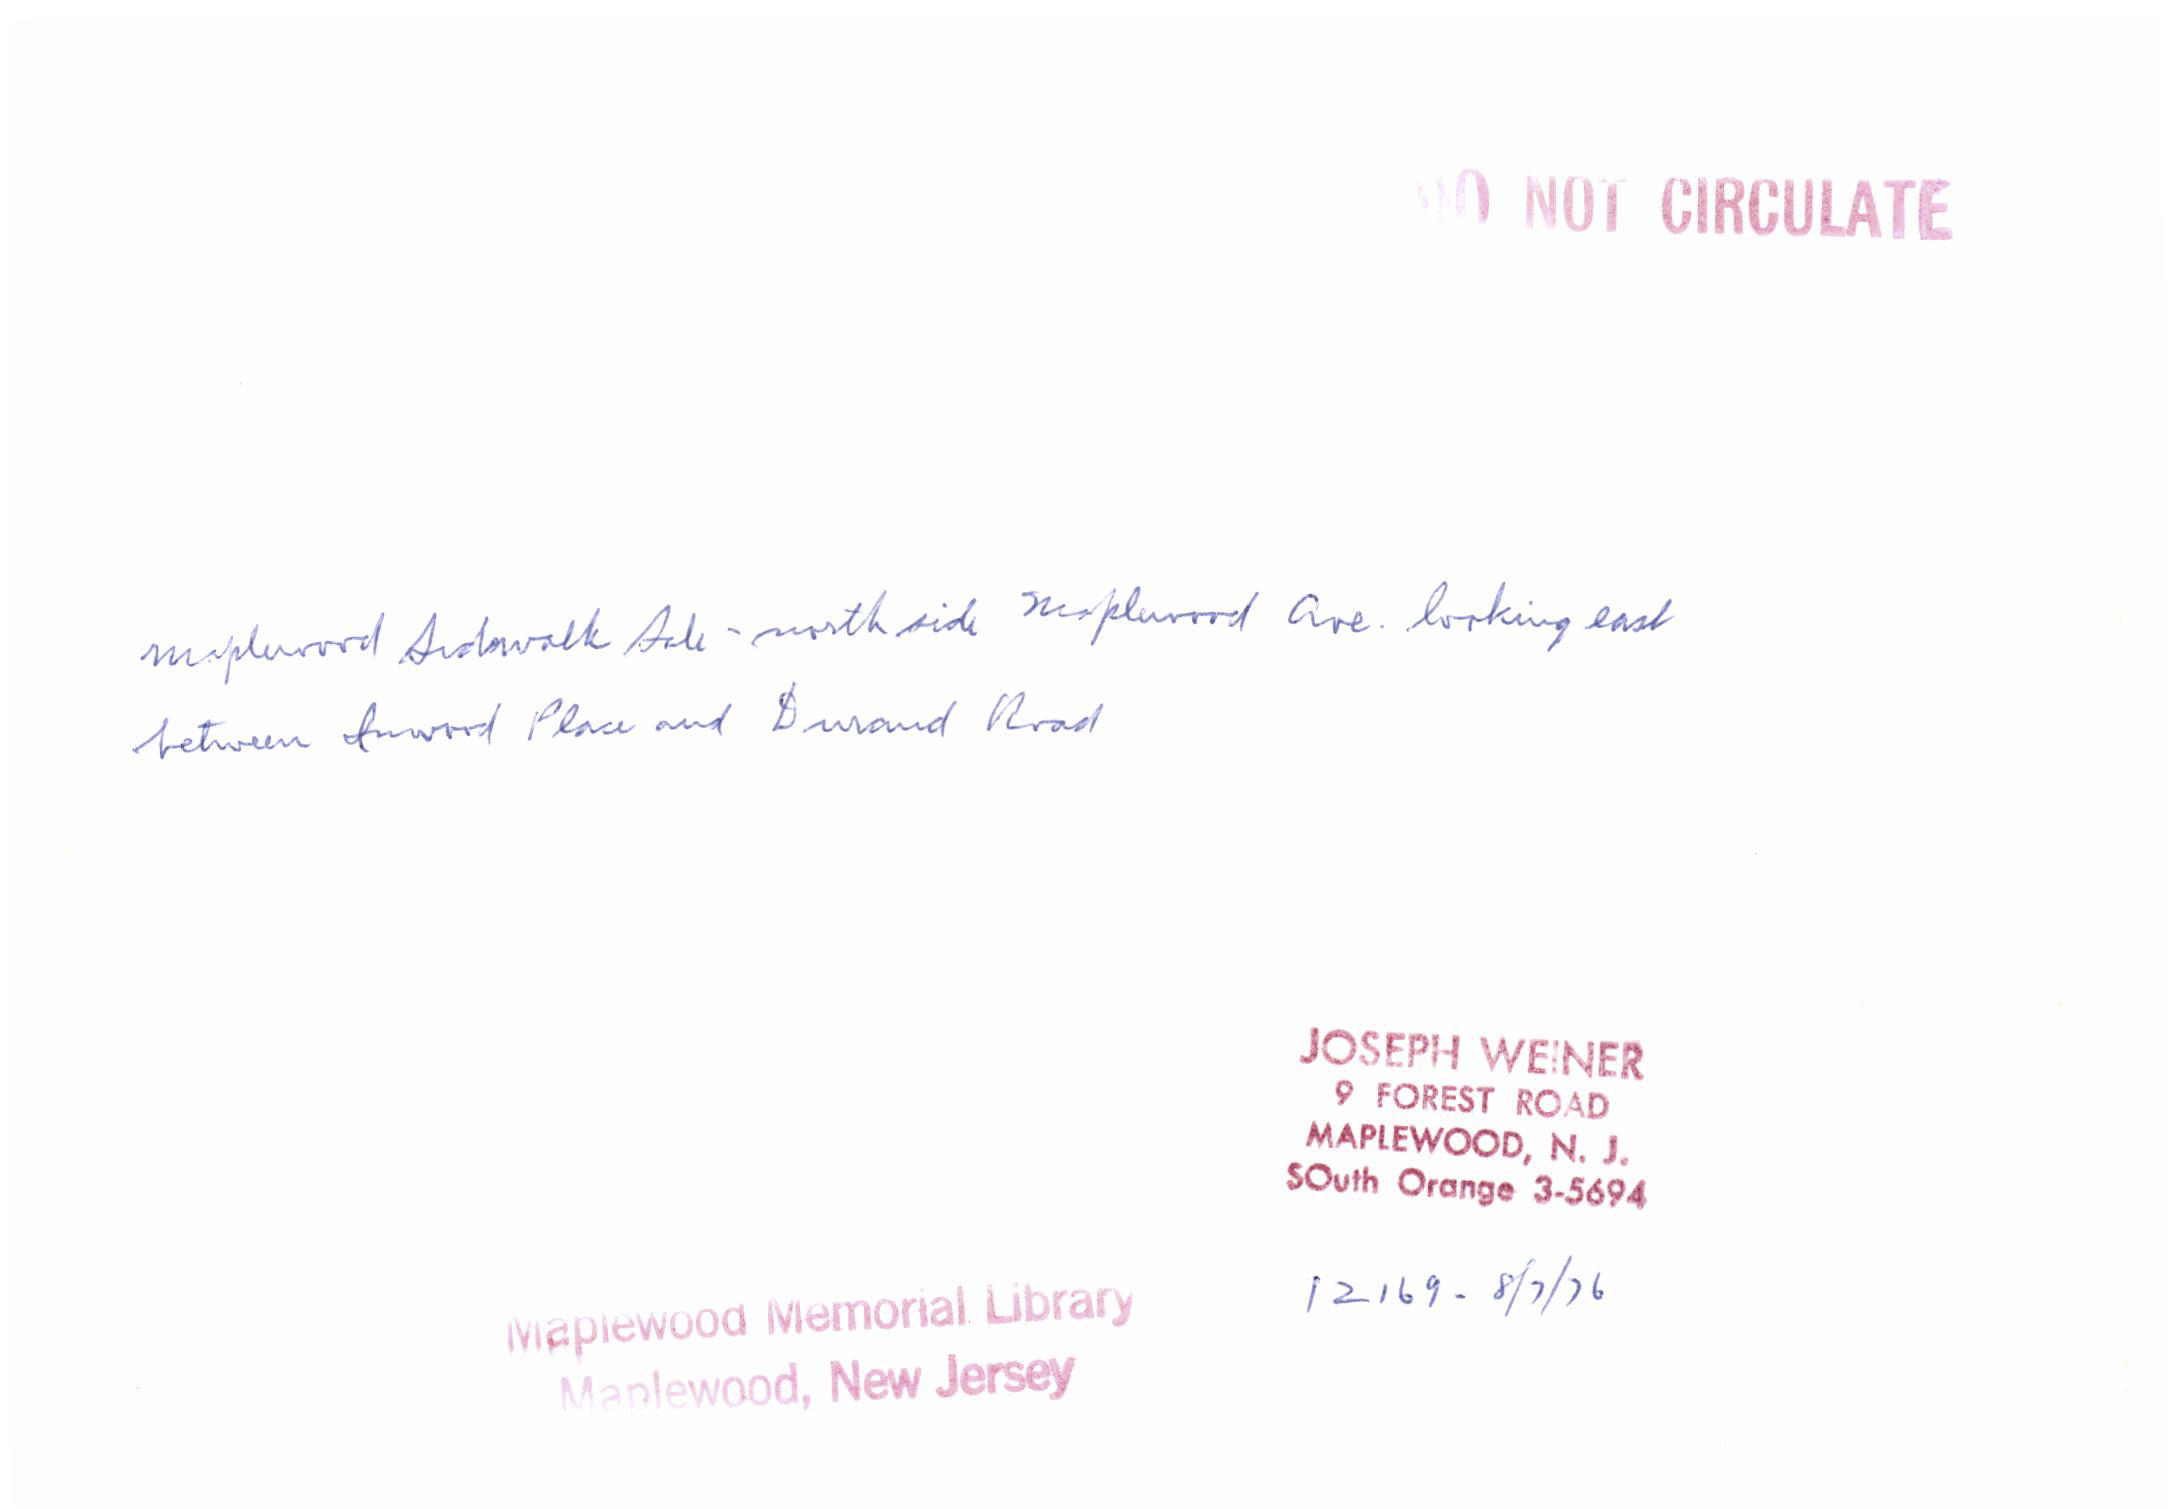 DO NOT CIRCULATE
Maplewood Sidewalk Sale - north side Maplewood Ave. looking east
between Inwood Place and Durand Road
JOSEPH WEINER
9 FOREST ROAD
MAPLEWOOD, N. J.
SOuth Orange 3-5694
12169 - 8/7/76
Maplewood Memorial Library
Maplewood, New Jersey